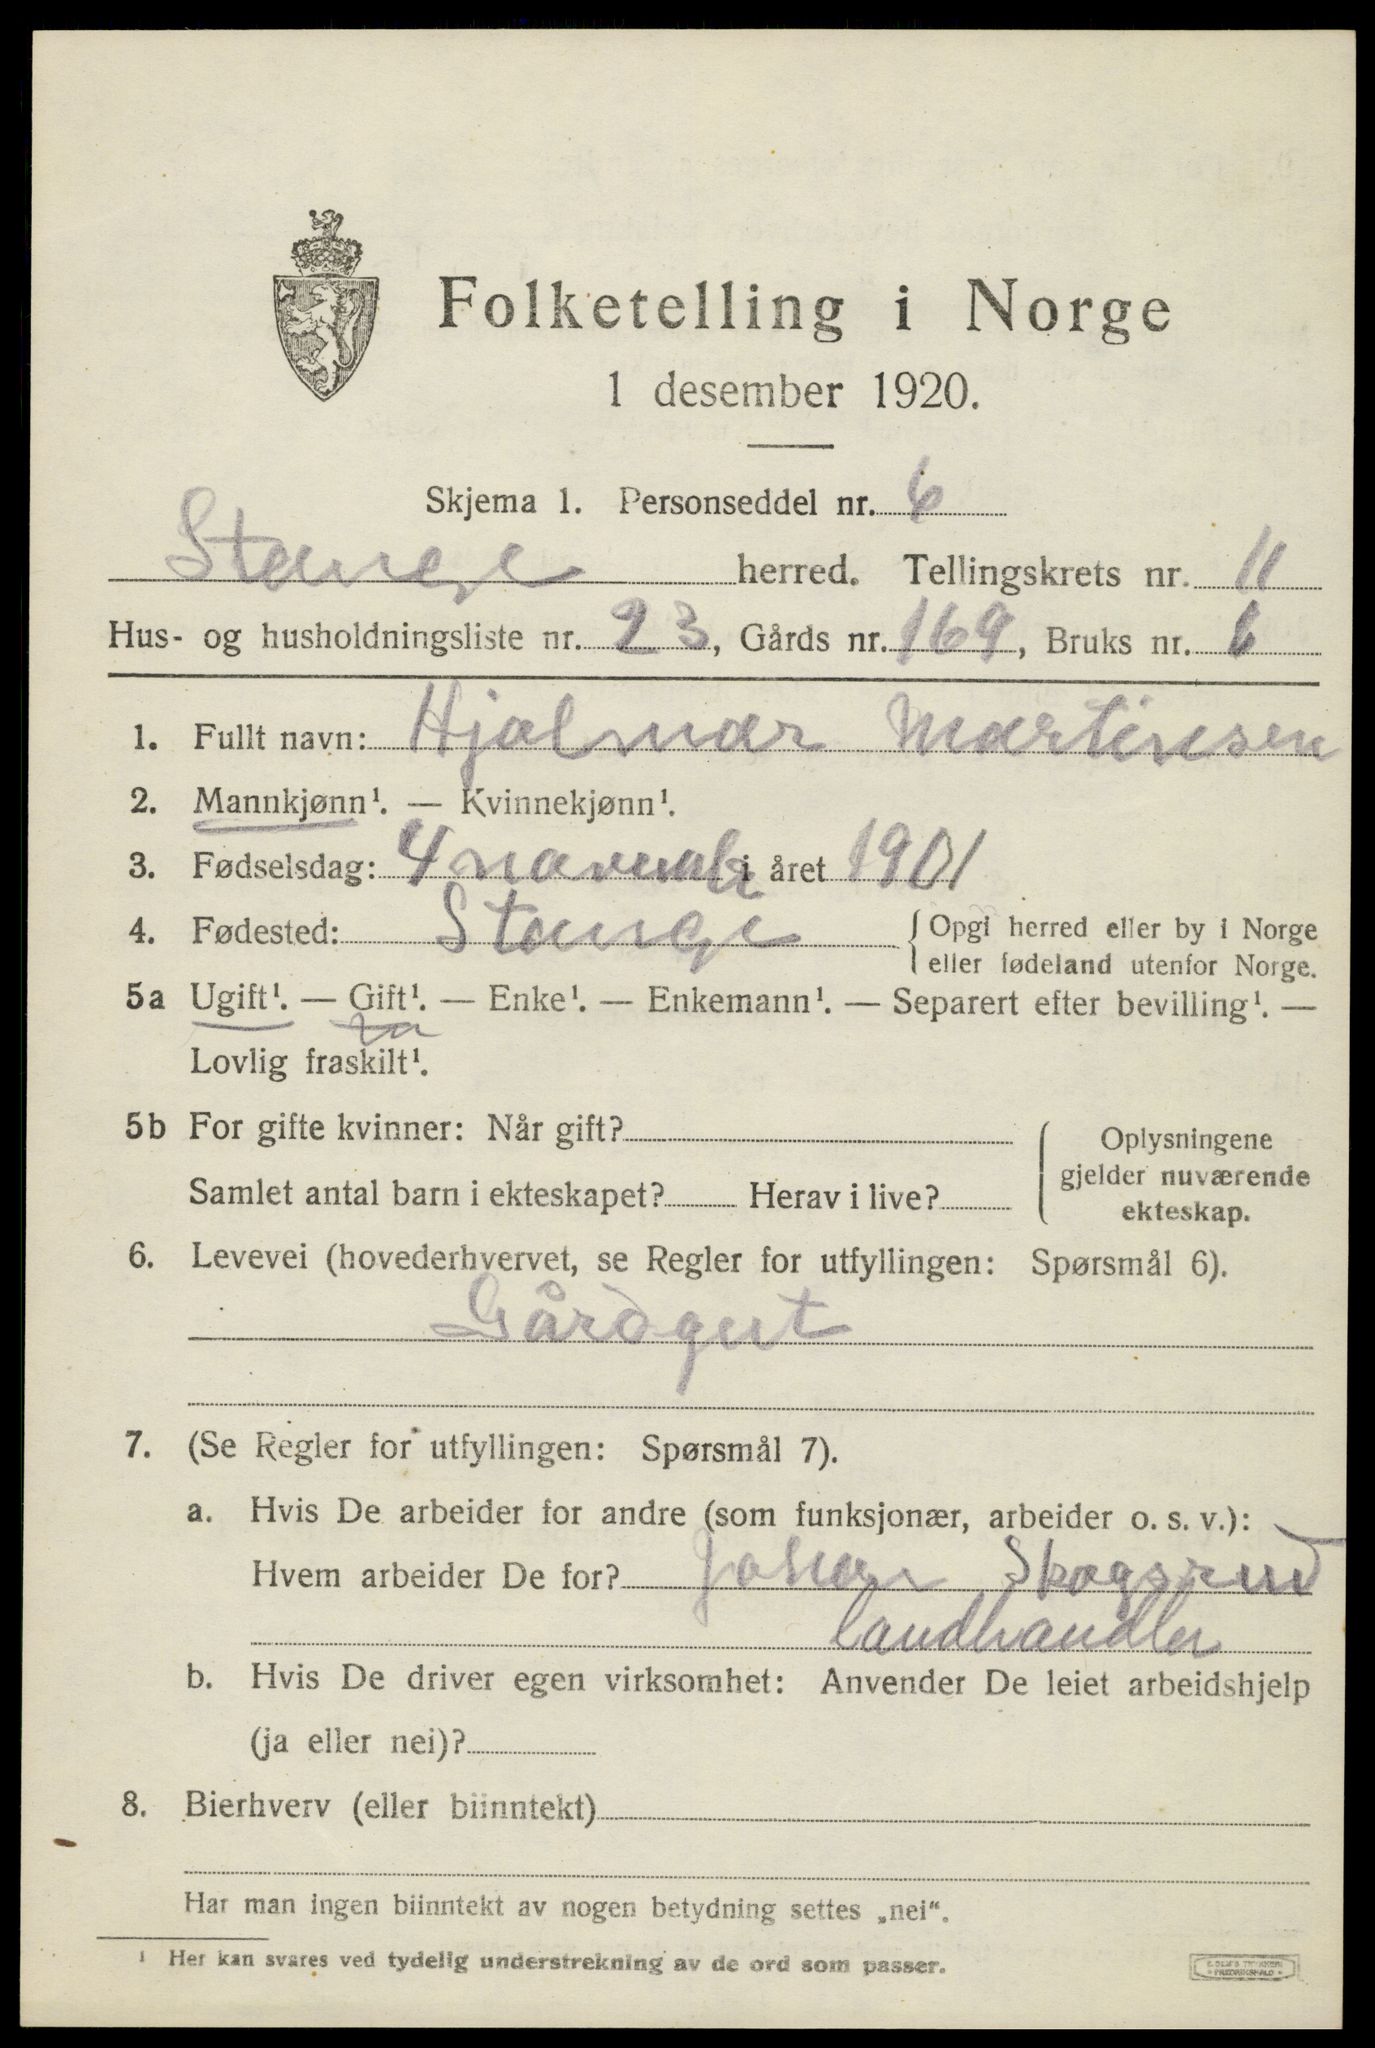 Folketelling i Norge
1 desember 1920.
Skjema 1. Personseddel nr. 6
Stange herred. Tellingskrets nr. 11
Hus- og husholdningsliste nr. 23, Gårds nr. 169, Bruks nr. 6
1. Fullt navn: Hjalmar Martinsen
2. Mannkjønn¹. — Kvinnekjønn¹.
3. Fødselsdag: 4 novembr i året 1901
4. Fødested: Stange {Opgi herred eller by i Norge
eller fødeland utenfor Norge.
5a Ugift¹. — Gift¹. — Enke¹. — Enkemann¹. — Separert efter bevilling¹. —
Lovlig fraskilt¹.
5b For gifte kvinner: Når gift? { Oplysningene
gjelder nuværende
Samlet antal barn i ekteskapet? Herav i live?
ekteskap.
6. Levevei (hovederhvervet, se Regler for utfyllingen: Spørsmål 6).
Gårdgut
7. (Se Regler for utfyllingen: Spørsmål 7).
a. Hvis De arbeider for andre (som funksjonær, arbeider o. s. v.):
Hvem arbeider De for? Johan Skogsrud
landhandler
b. Hvis De driver egen virksomhet: Anvender De leiet arbeidshjelp
(ja eller nei)?
8. Bierhverv (eller biinntekt)
Har man ingen biinntekt av nogen betydning settes „nei“.
¹ Her kan svares ved tydelig understrekning av de ord som passer.